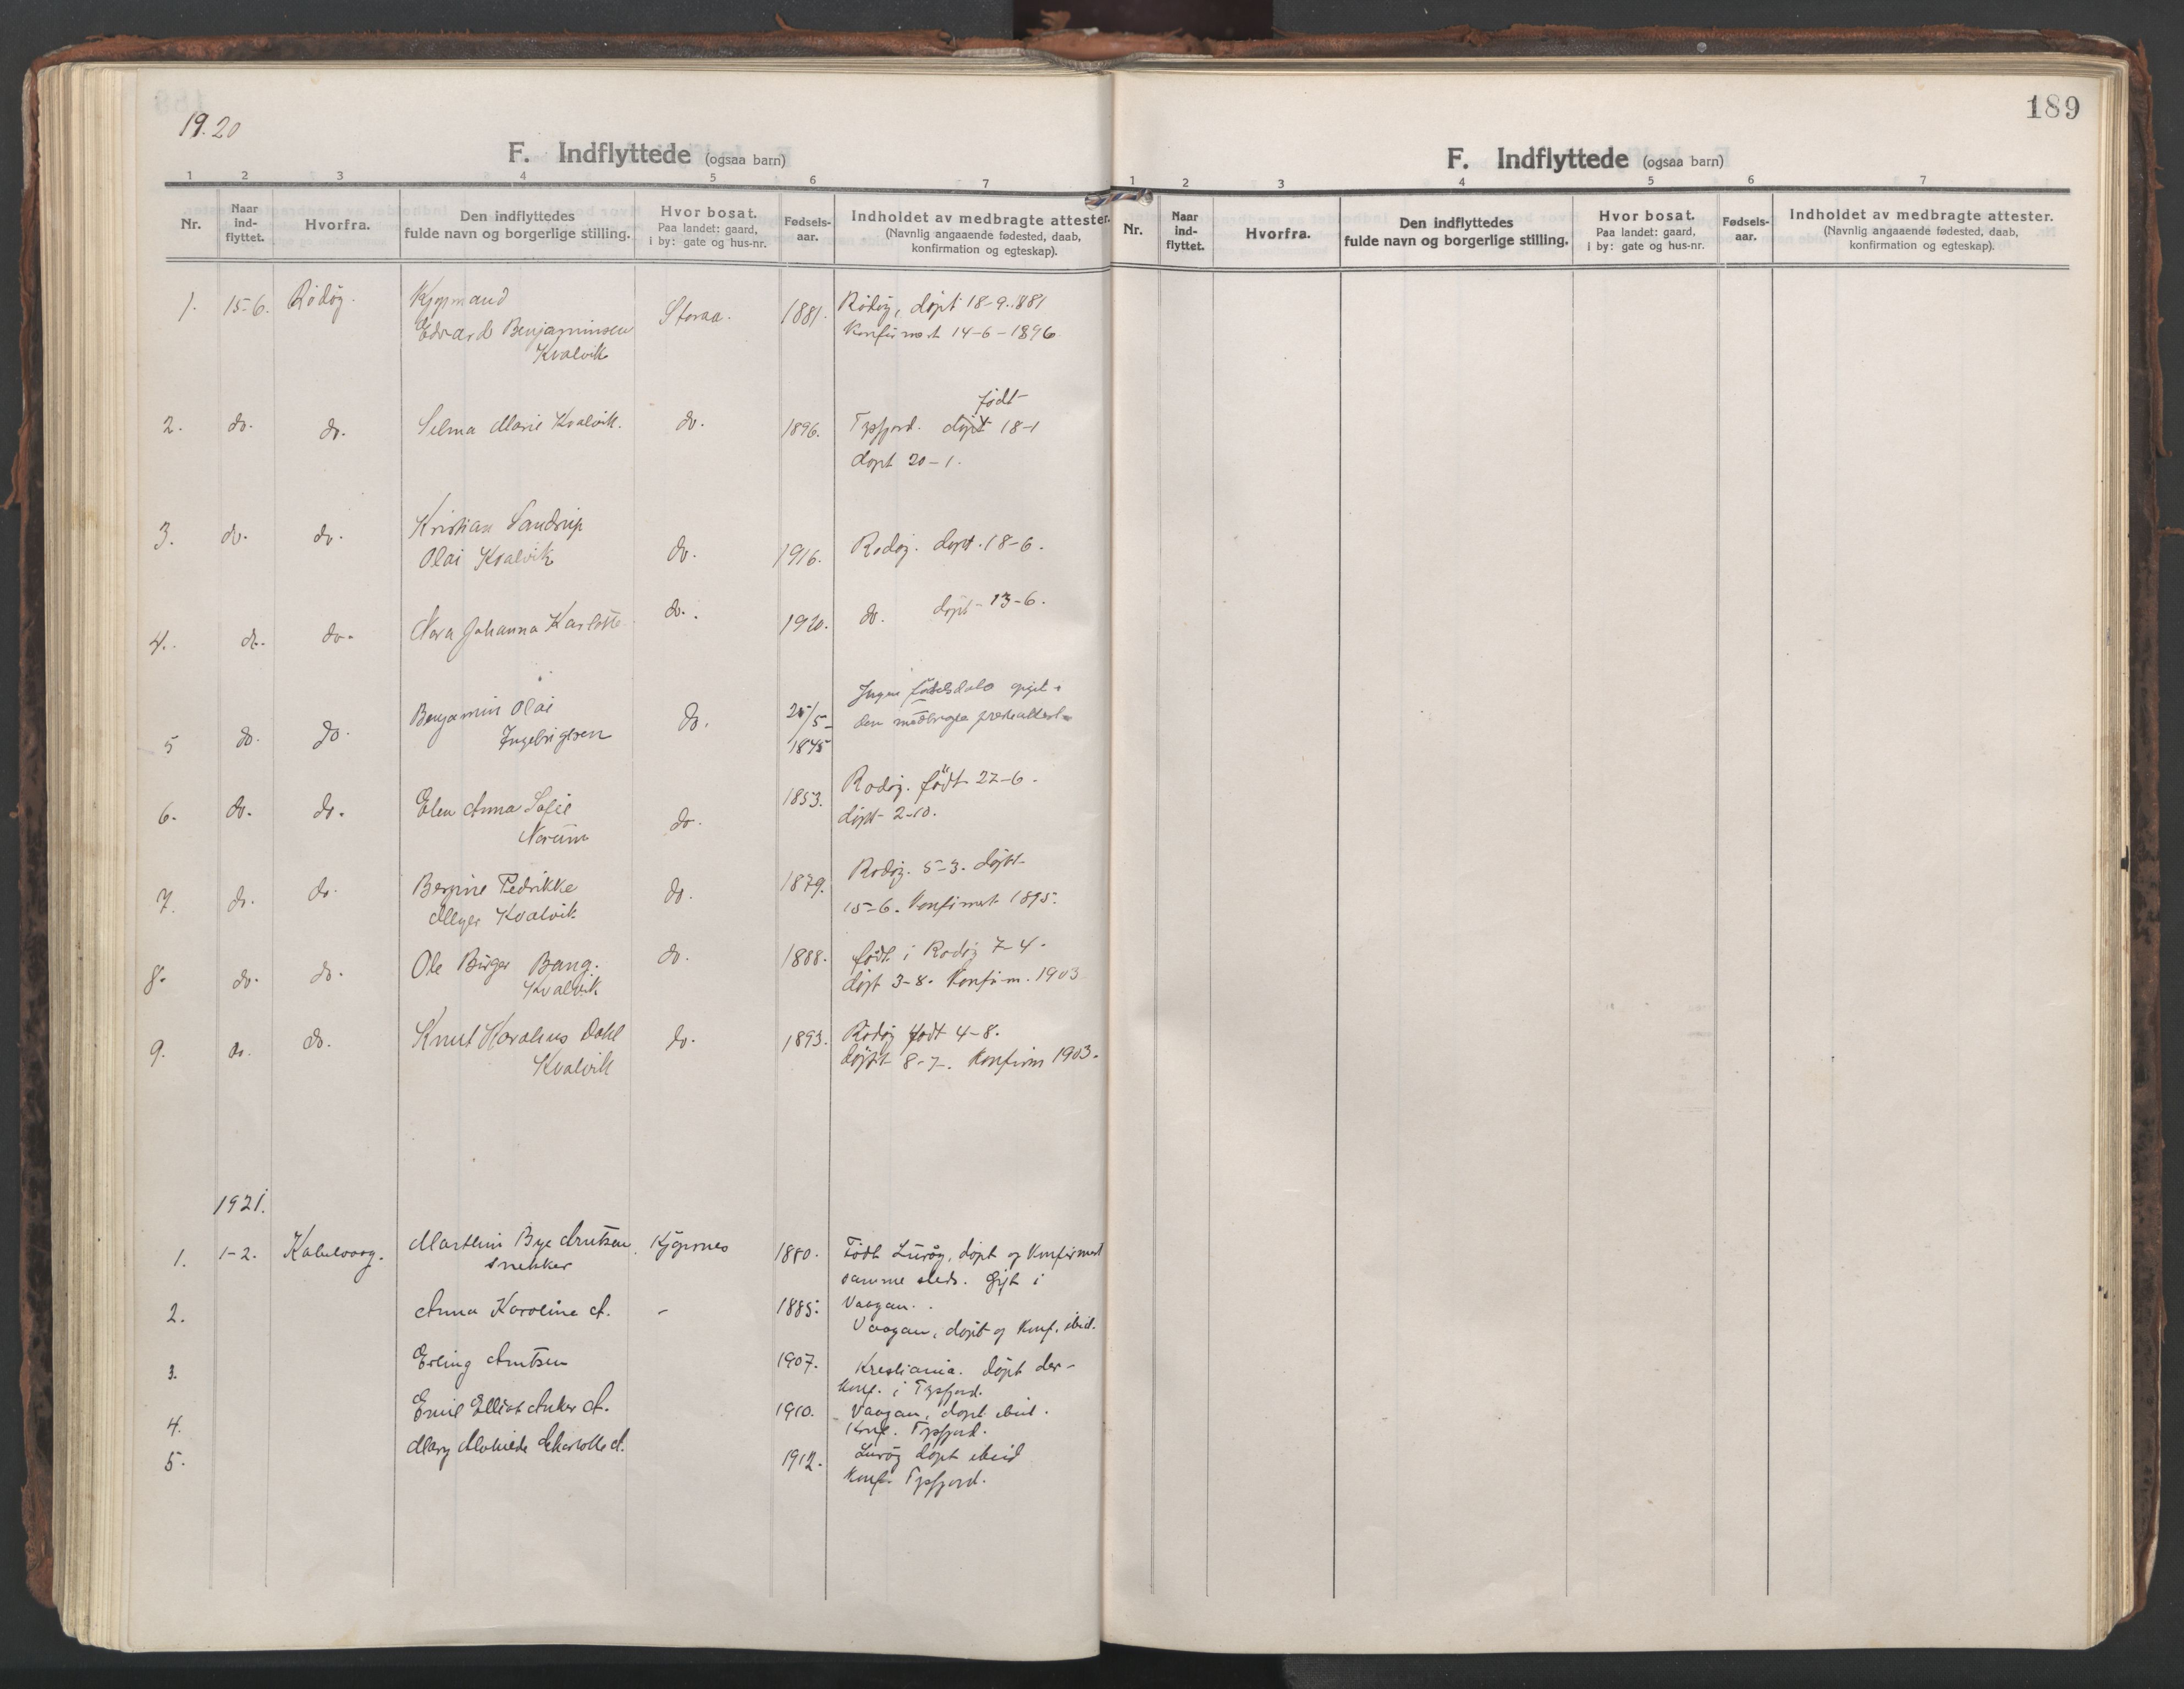 19.20
F. Indflyttede (ogsaa barn)
1 2 3 4 5 6 7
Nr. Naar ind-flyttet. Hvorfra. Den indflyttedes fulde navn og borgerlige stilling. Hvor bosat. Paa landet: gaard, i by: gate og hus-nr. Fødsels-aar. Indholdet av medbragte attester. (Navnlig angaaende fødested, daab, konfirmation og egteskap).
1. 15-6. Rödöy. Kjøpmand Storaa. 1881. Rödöy, døpt 18-9-1881
Edvard Benjaminsen Konfirmert 14-6-1896
Kvalvik
født
2. do. do. Selma Marie Kvalvik. do. 1896. Tysfjord. døpt 18-1
døpt 20-1.
3. do. do. Kristian Sandrup
Olai Kvalvik do. 1916. Rødøy. døpt. 18-6.
4. do. do. Nora Johanna Karlotte do. 1920. do. døpt 13-6.
5 do. do. Benjamin Olai do. 25/5- 1845 Ingen fødselsdato opgit i
Ingebrigtsen den medbragte presteattest
6. do. do. Elen Anna Sofie do. 1853. Rødøy. født 22-6.
Norum døpt 2-10.
7. do. do. Bergine Pedrikke do. 1879. Rødøy. 5-3. døpt
Meyer Kvalvik 15-6. Konfirmert 1895.
8. do. do. Ole Birger Bang. do. 1888. født i Rødøy 7-4.
Kvalvik døpt 3-8. Konfirm. 1903
9. do. do. Knut Haralius Dahl do. 1893. Rødøy født 4-8.
Kvalvik døpt 8-7. Konfirm 1903.
1921.
1. 1-2. Kabelvaag. Marthin Bye Arntsen, Kjøpsnes 1880. Født Lurøy, døpt og Konfirmert
snekker samme sted. Gift i
2. Anna Karoline A. - 1885. Vaagan.
Vaagan, døpt og Konf. ibid.
3. Erling Arntsen 1907. Kristiania. døpt der-
Konf. i Tysfjord.
4. Emil Elliot Anker A. 1910. Vaagan, døpt ibid.
Konf. Tysfjord.
5. Mary Mathilde Charlotte A. 1912. Lurøy døpt ibid
Konf. Tysfjord.
189
F. Indflyttede (ogsaa barn)
1 2 3 4 5 6 7
Nr. Naar ind-flyttet. Hvorfra. Den indflyttedes fulde navn og borgerlige stilling. Hvor bosat. Paa landet: gaard, i by: gate og hus-nr. Fødsels-aar. Indholdet av medbragte attester. (Navnlig angaaende fødested, daab, konfirmation og egteskap).